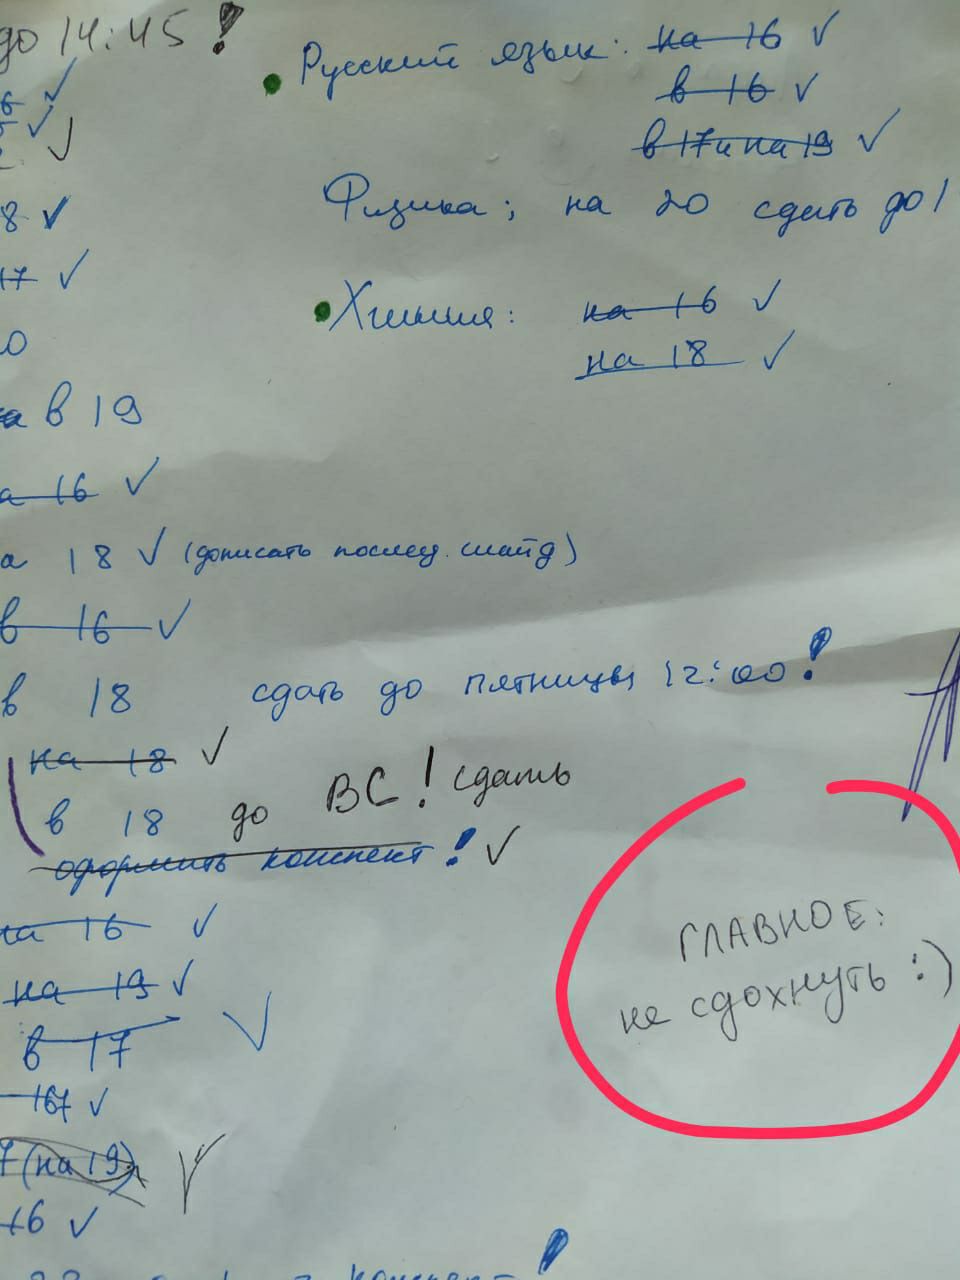 до 14:45!
Русский язык: на 16 ✓
в 16 ✓
в 17 и на 19 ✓
8 ✓
Физика; на 20 сдать до 1
17 ✓
Химия: на 16 ✓
на 18 ✓
0
а в 19
а 16 ✓
а 18 ✓ (дописать послед. слайд)
в 16 ✓
в 18 сдать до пятницы 12:00!
на 18 ✓
в 18 до ВС! сдать
оформить конспект! ✓
на 16 ✓
ГЛАВНОЕ:
не сдохнуть :)
на 19 ✓
в 17 ✓
167 ✓
7 (на 19) ✓
16 ✓
конспект!